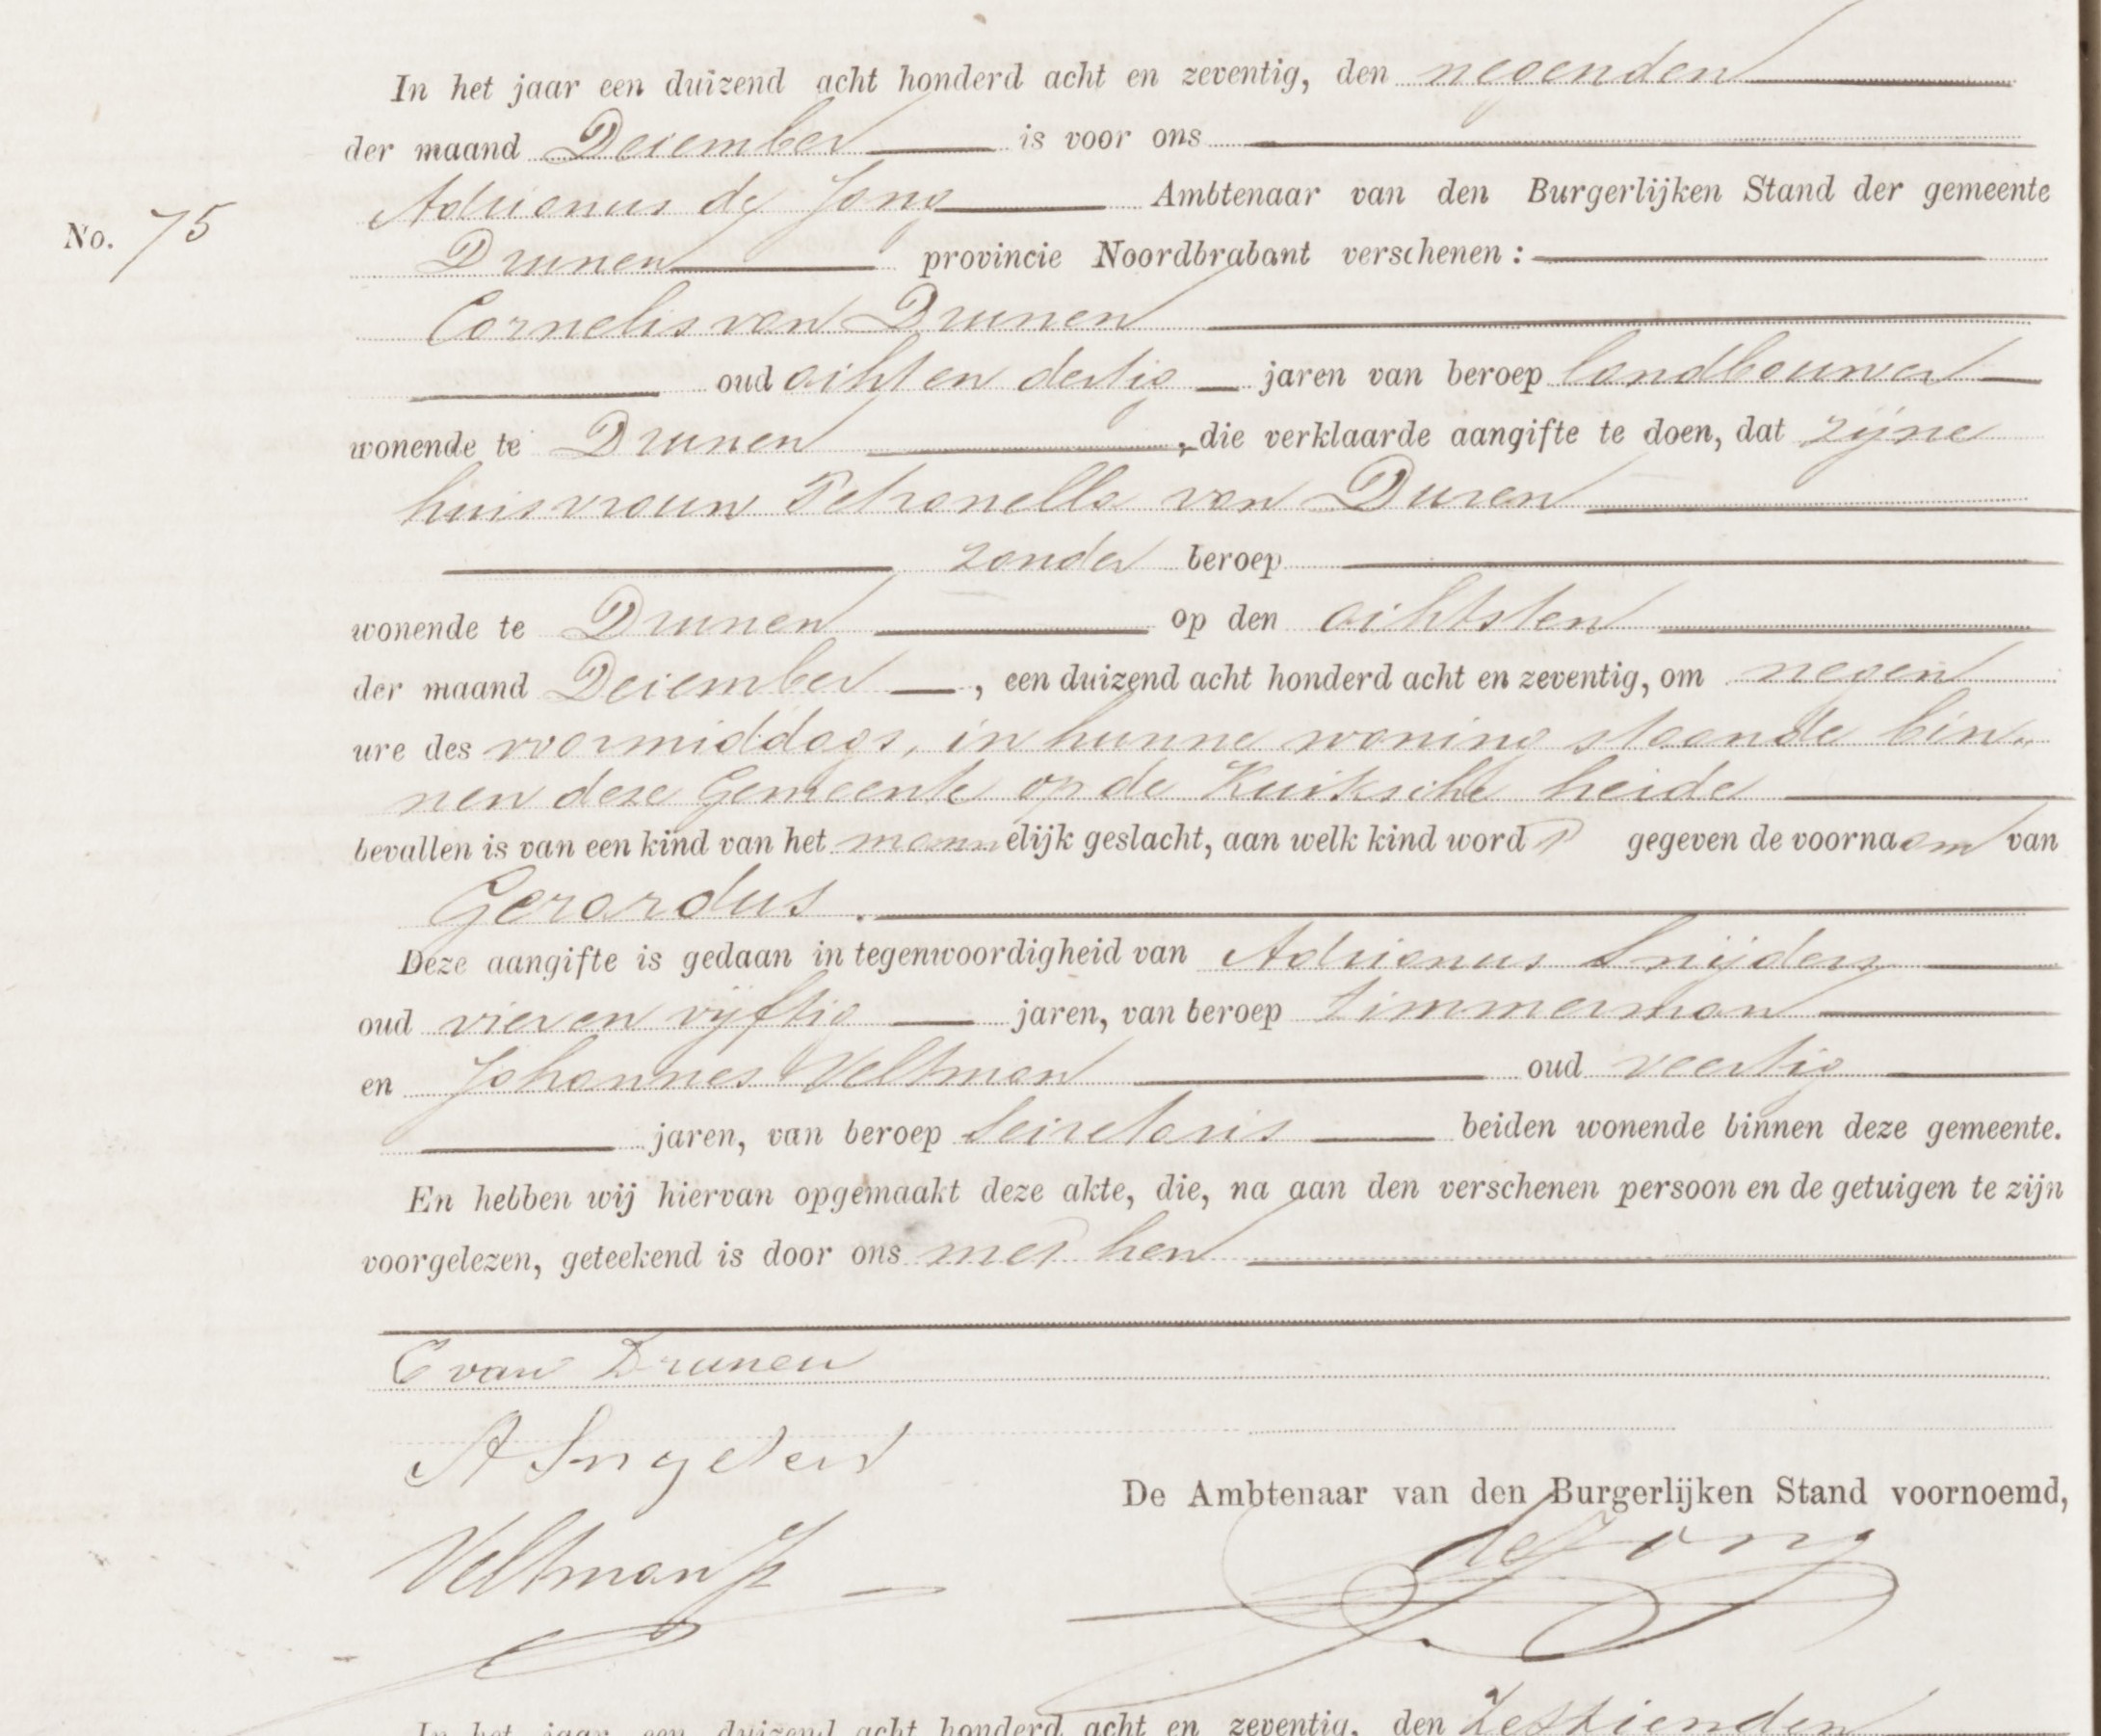 In het jaar een duizend acht honderd acht en zeventig, den negenden
der maand December is voor ons
Adrianus de Jong Ambtenaar van den Burgerlijken Stand der gemeente
No. 75
Drunen provincie Noordbrabant verschenen:
Cornelis van Drunen
oud acht en dertig jaren van beroep landbouwer
wonende te Drunen, die verklaarde aangifte te doen, dat zijne
huisvrouw Petronella van Duren
zonder beroep
wonende te Drunen op den achtsten
der maand December, een duizend acht honderd acht en zeventig, om negen
ure des voormiddags, in hunne woning staande bin„
nen deze Gemeente op de heide
bevallen is van een kind van het mannelijk geslacht, aan welk kind wordt gegeven de voornaam van
Gerardus.
Deze aangifte is gedaan in tegenwoordigheid van Adrianus Snijders
oud vier en vijftig jaren, van beroep timmerman
en Johannes Veltman oud veertig
jaren, van beroep Secretaris beiden wonende binnen deze gemeente.
En hebben wij hiervan opgemaakt deze akte, die, na aan den verschenen persoon en de getuigen te zijn
voorgelezen, geteekend is door ons met hen
C van Drunen
A Snyders
De Ambtenaar van den Burgerlijken Stand voornoemd,
Veltman
de Jong
In het jaar een duizend acht honderd acht en zeventig, den Zestienden